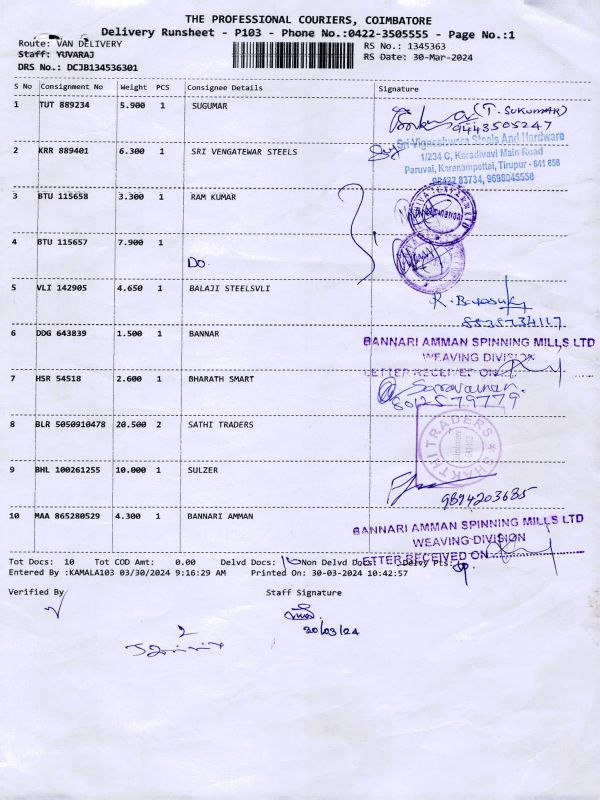 THE PROFESSIONAL COURIERS, COIMBATORE
Delivery Runsheet - P103 - Phone No.:0422-3505555 - Page No.:1
Route: VAN DELIVERY RS No.: 1345363
Staff: YUVARAJ RS Date: 30-Mar-2024
DRS No.: DCJB134536301
S No Consignment No Weight PCS Consignee Details Signature
1 TUT 889234 5.900 1 SUGUMAR
(T. SUKUMAR)
9443505247
2 KRR 889401 6.300 1 SRI VENGATEWAR STEELS
Sri Vigneshwara Steels And Hardware
1/234 C, Karadivavi Main Road
Paruvai, Karanampettai, Tirupur - 641 658
98422 83734, 9698045558
3 BTU 115658 3.300 1 RAM KUMAR
4 BTU 115657 7.900 1
DO
5 VLI 142905 4.650 1 BALAJI STEELSVLI
6 DDG 643839 1.500 1 BANNAR
BANNARI AMMAN SPINNING MILLS LTD
WEAVING DIVISION
LETTER RECEIVED ON
7 HSR 54518 2.600 1 BHARATH SMART
Saravanan
8012579779
8 BLR 5050910478 20.500 2 SATHI TRADERS
SHAKTHI TRADERS
9 BHL 100261255 10.000 1 SULZER
9894203685
10 MAA 865280529 4.300 1 BANNARI AMMAN
BANNARI AMMAN SPINNING MILLS LTD
WEAVING DIVISION
LETTER RECEIVED ON
Tot Docs: 10 Tot COD Amt: 0.00 Delvd Docs: 10 Non Delvd Docs: Delvy Pts:
Entered By :KAMALA103 03/30/2024 9:16:29 AM Printed On: 30-03-2024 10:42:57
Verified By Staff Signature
30/03/24